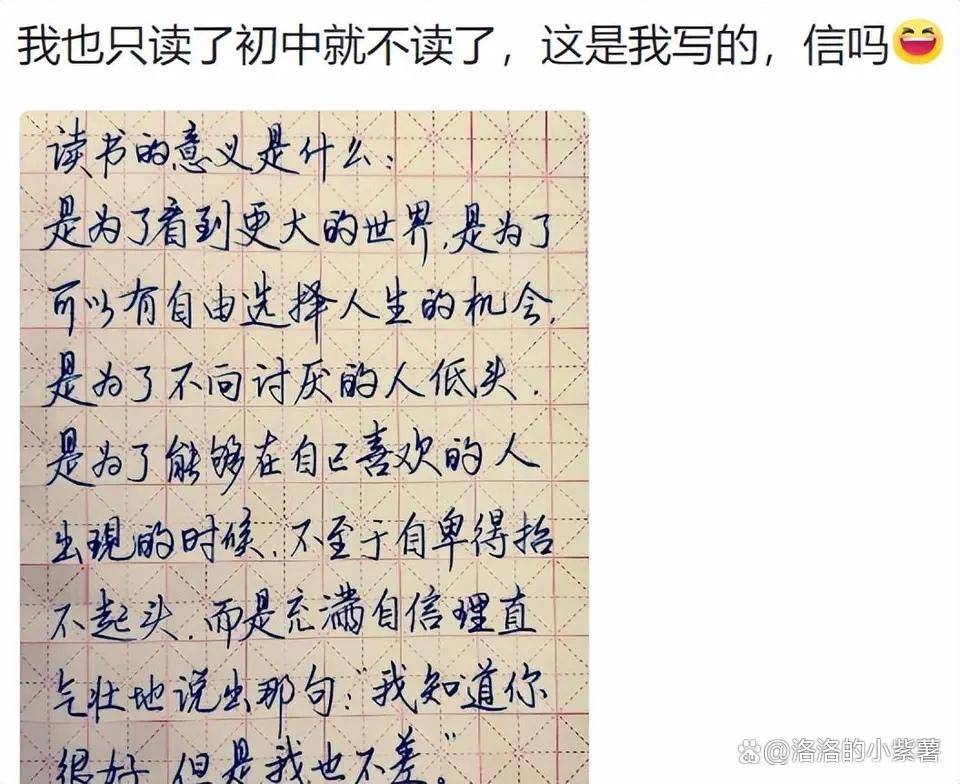 我也只读了初中就不读了，这是我写的，信吗😆
读书的意义是什么：
是为了看到更大的世界，是为了
可以有自由选择人生的机会，
是为了不向讨厌的人低头．
是为了能够在自己喜欢的人
出现的时候，不至于自卑得抬
不起头，而是充满自信理直
气壮地说出那句："我知道你
很好，但是我也不差。"
@洛洛的小紫薯